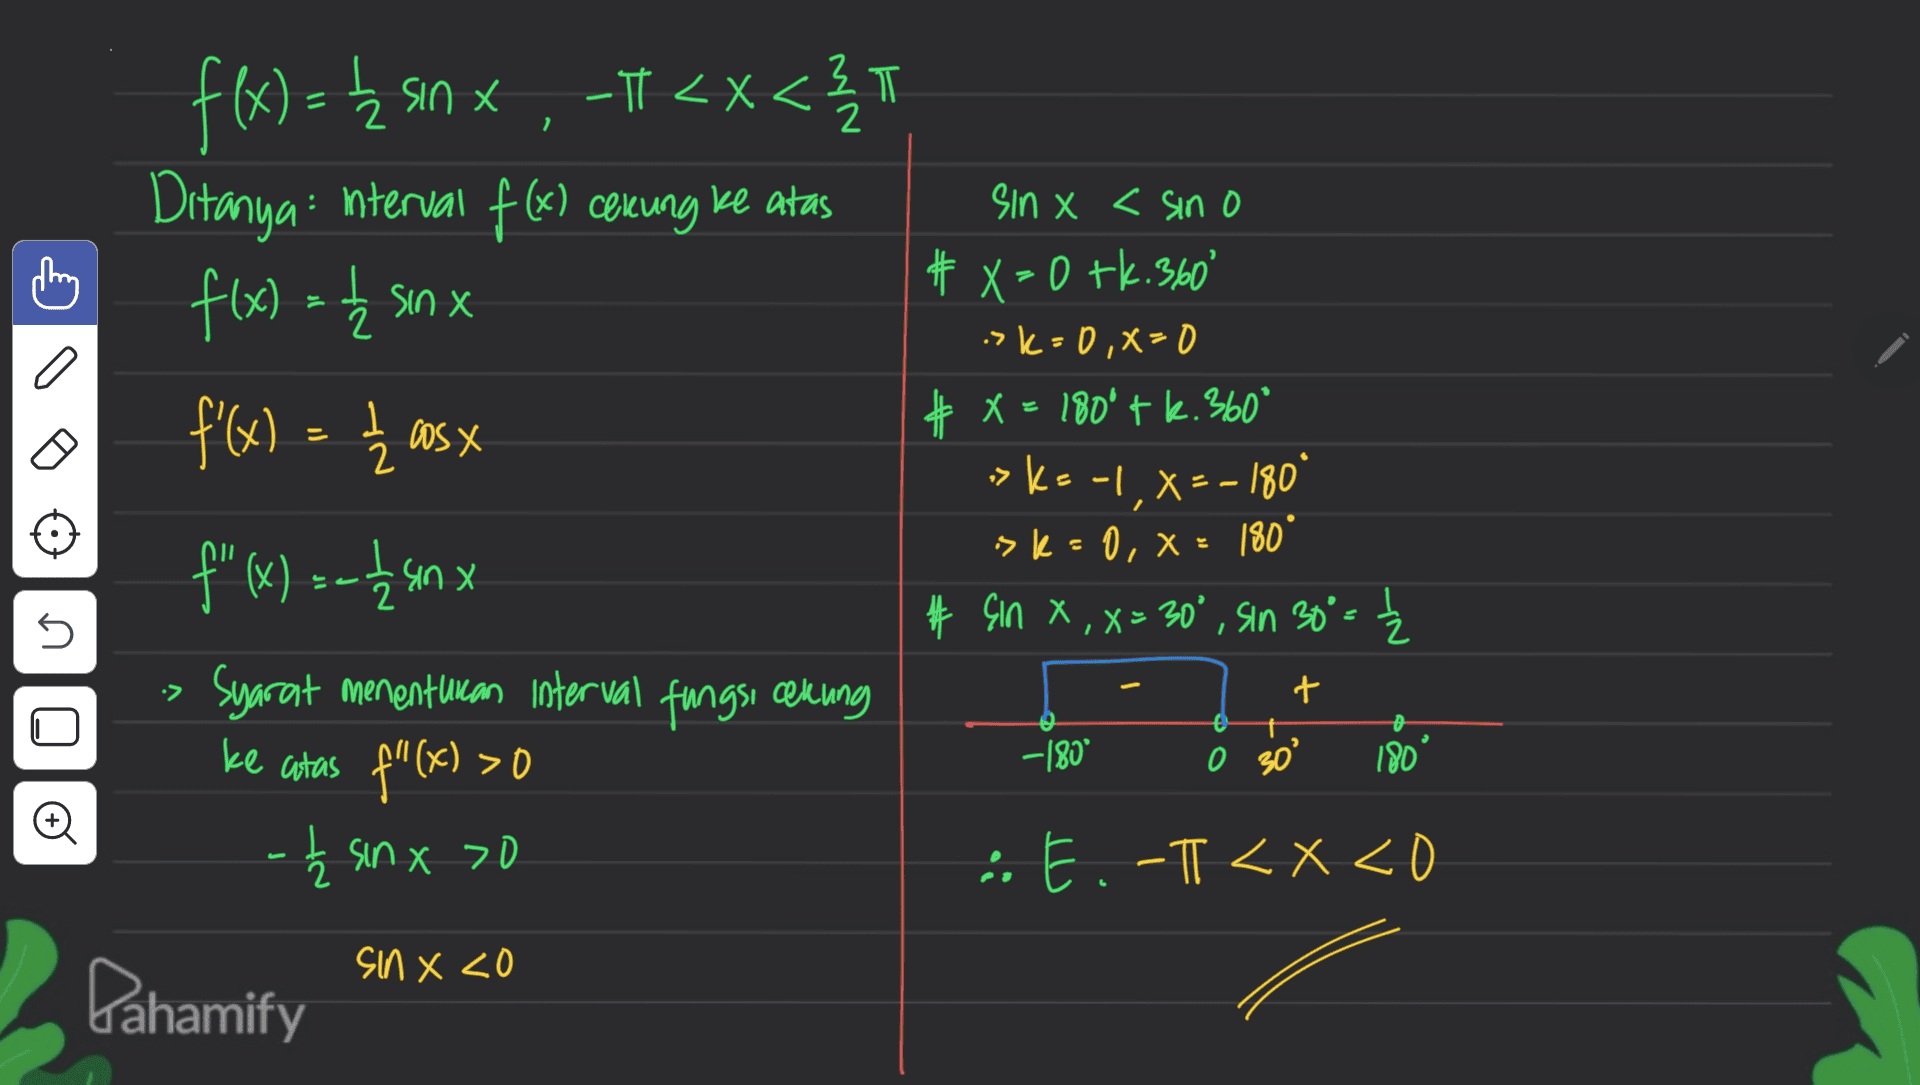 f(x) = 1/2 sin x , -π < x < 3/2 π
Ditanya : interval f(x) cekung ke atas
f(x) = 1/2 sin x
f'(x) = 1/2 cos x
f''(x) = -1/2 sin x
:> Syarat menentukan interval fungsi cekung
ke atas f''(x) > 0
- 1/2 sin x > 0
sin x < 0
sin x < sin 0
# x = 0 + k.360°
:> k = 0, x = 0
# x = 180° + k.360°
:> k = -1, x = -180°
:> k = 0, x = 180°
# sin x, x = 30°, sin 30° = 1/2
- +
-180° 0 30° 180°
∴ E. -π < x < 0
Pahamify